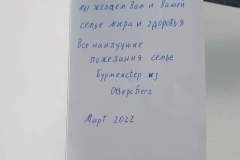 мы желаем вам и вашей
семье мира и здоровья
Все наилучшие
пожелания семье
Бурмейстер из
Март 2022